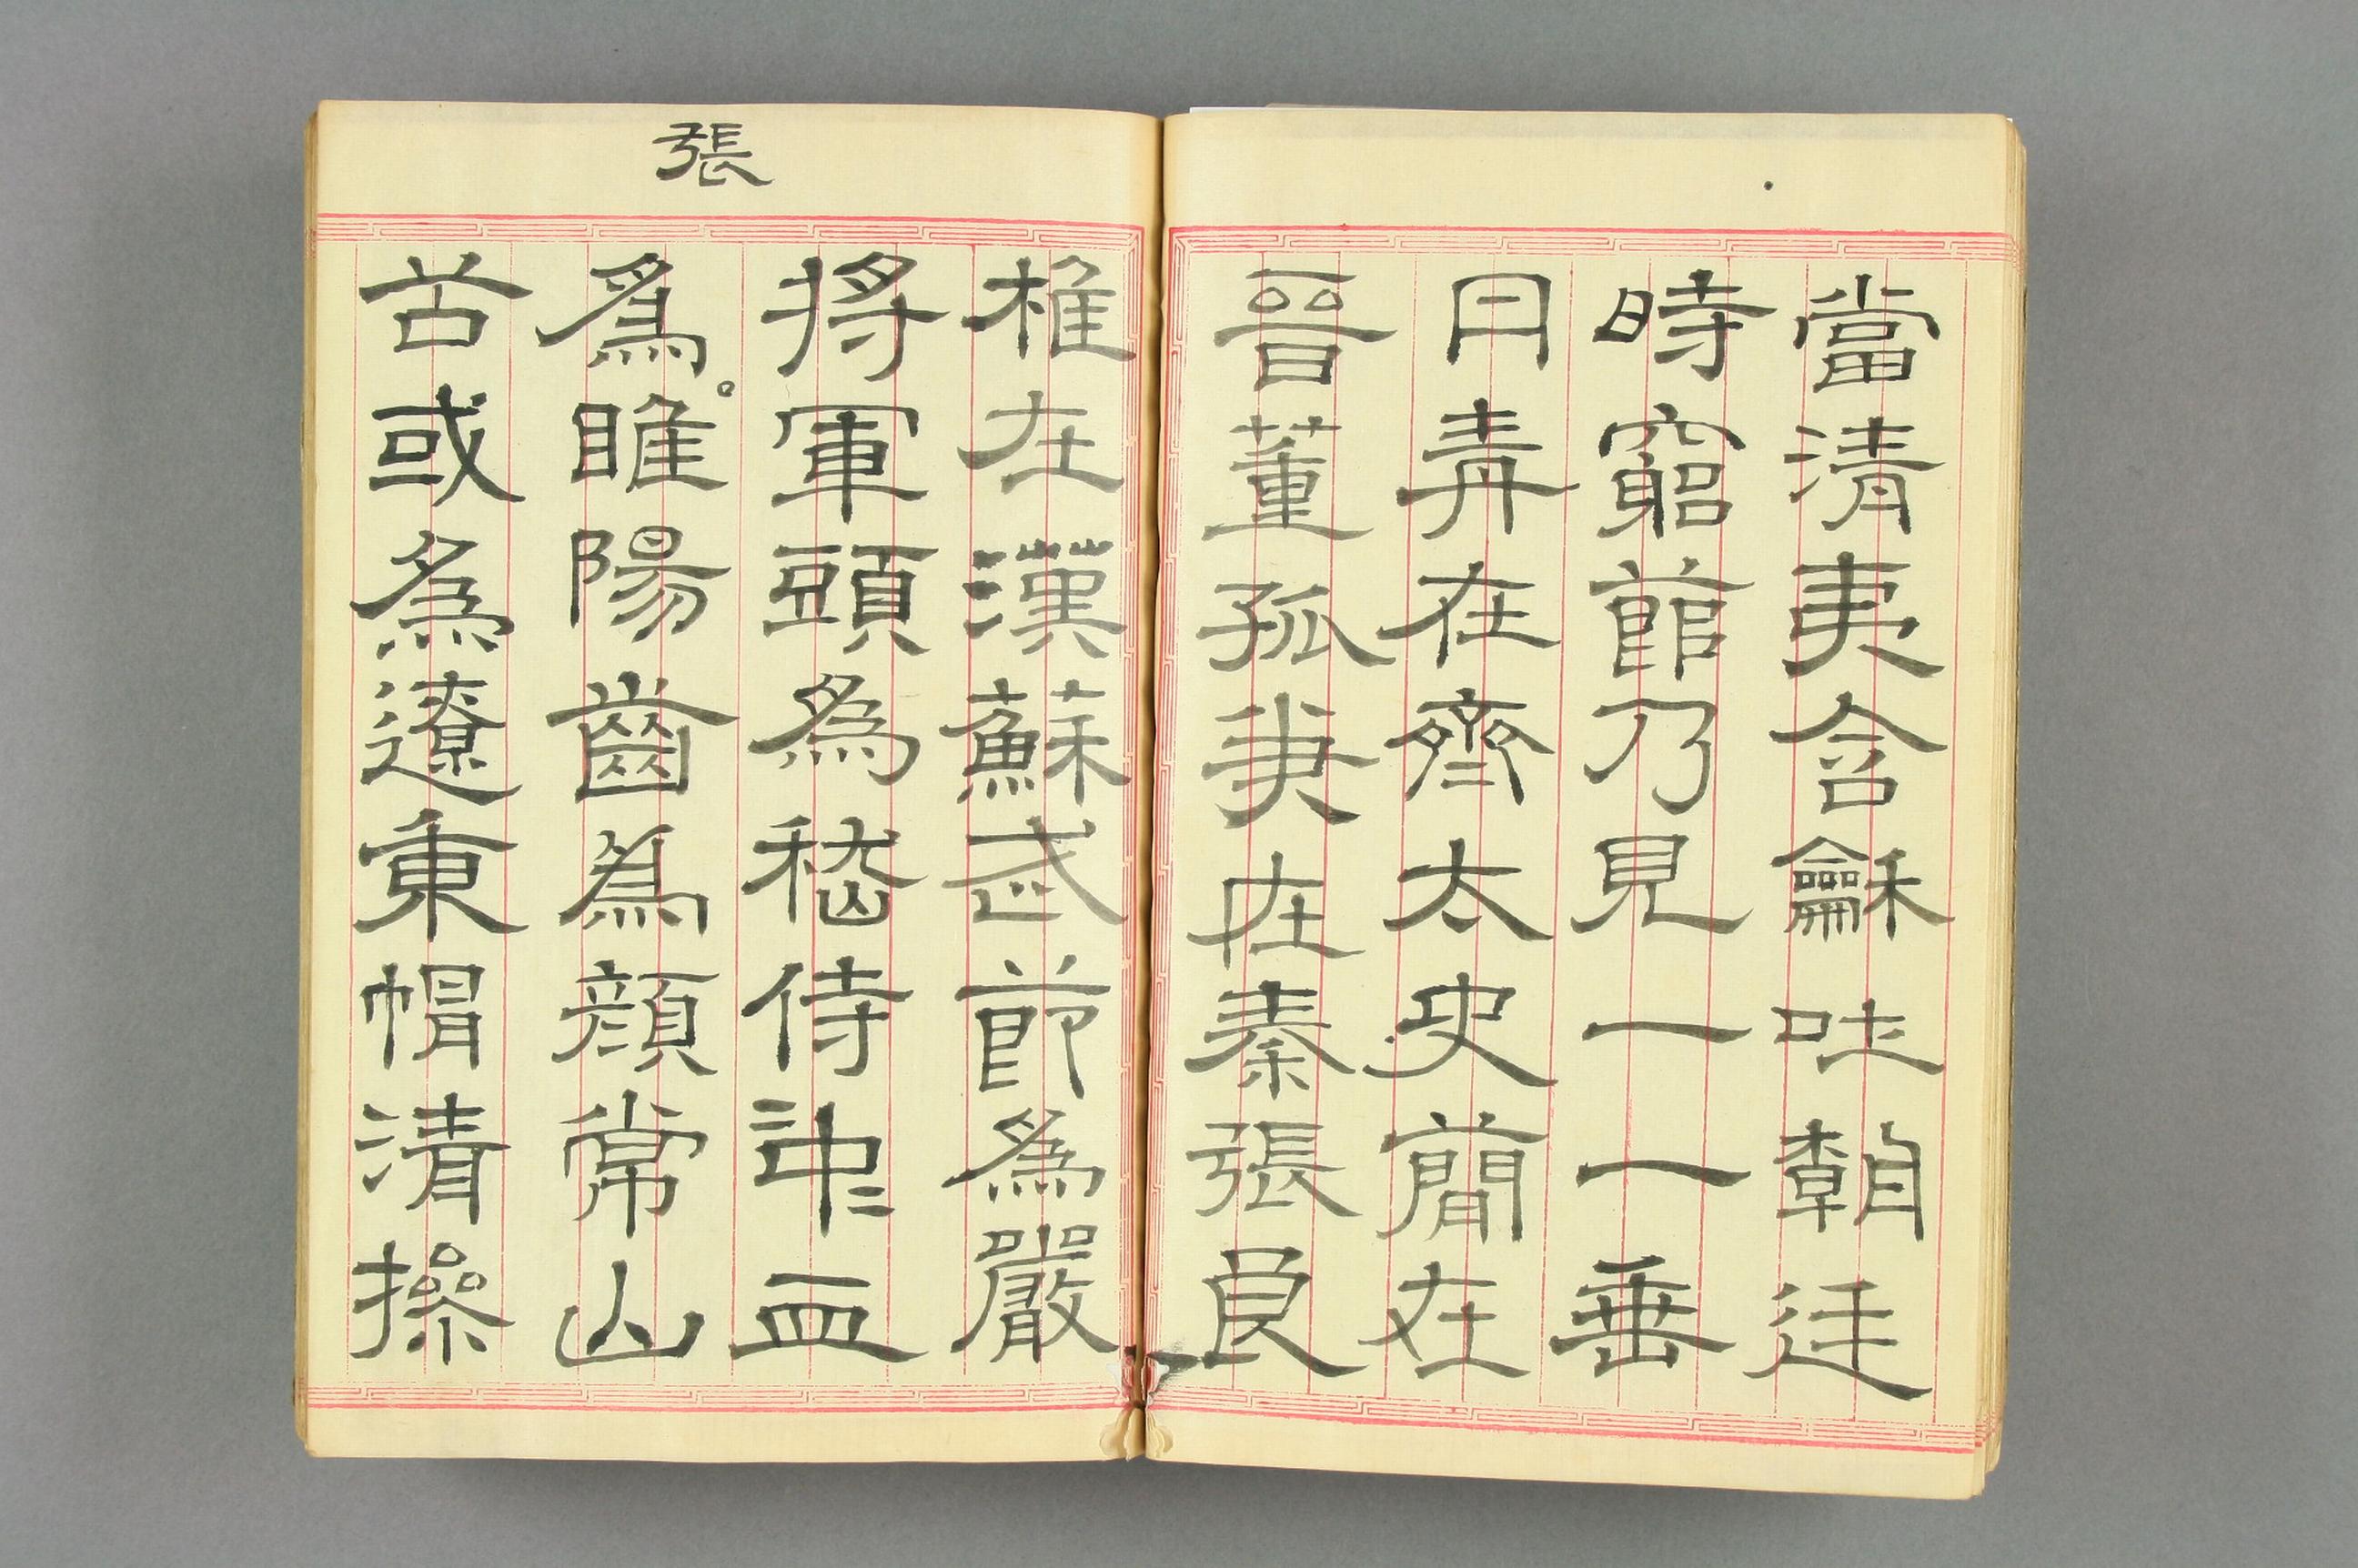 當清夷含龢吐朝廷
時窮節乃見一一垂
丹青在齊太史簡在
晉董狐筆在秦張良
椎在漢蘇武節為嚴
將軍頭為嵇侍中血
張
為睢陽齒為顏常山
舌或為遼東帽清操